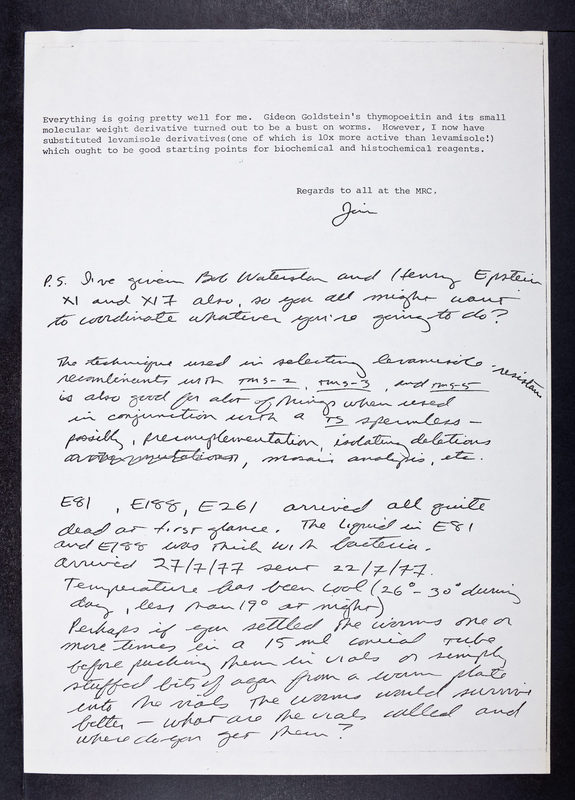 Everything is going pretty well for me.  Gideon Goldstein's thymopoeitin and its small
molecular weight derivative turned out to be a bust on worms.  However, I now have
substituted levamisole derivatives(one of which is 10x more active than levamisole!)
which ought to be good starting points for biochemical and histochemical reagents.
Regards to all at the MRC.
Jim
P.S. I've given Bob Waterston and Henry Epstein
X1 and X17 also, so you all might want
to coordinate whatever you're going to do?
The technique used in selecting levamisole-resistant
recombinants with rms-2, rms-3, and rms-5
is also good for alot of things when used
in conjunction with a ts spermless -
possibly, precomplementation, isolating deletions
, mosaic analysis, etc.
E81, E188, E261 arrived all quite
dead at first glance. The liquid in E81
and E188 was thick with bacteria.
arrived 27/7/77 sent 22/7/77.
Temperature has been cool (26°-30° during
day, less than 19° at night)
Perhaps if you settled the worms one or
more times in a 15 ml conical tube
before packing them in vials or simply
stuffed bits of agar from a worm plate
into the vials the worms would survive
better - what are the vials called and
where do you get them?